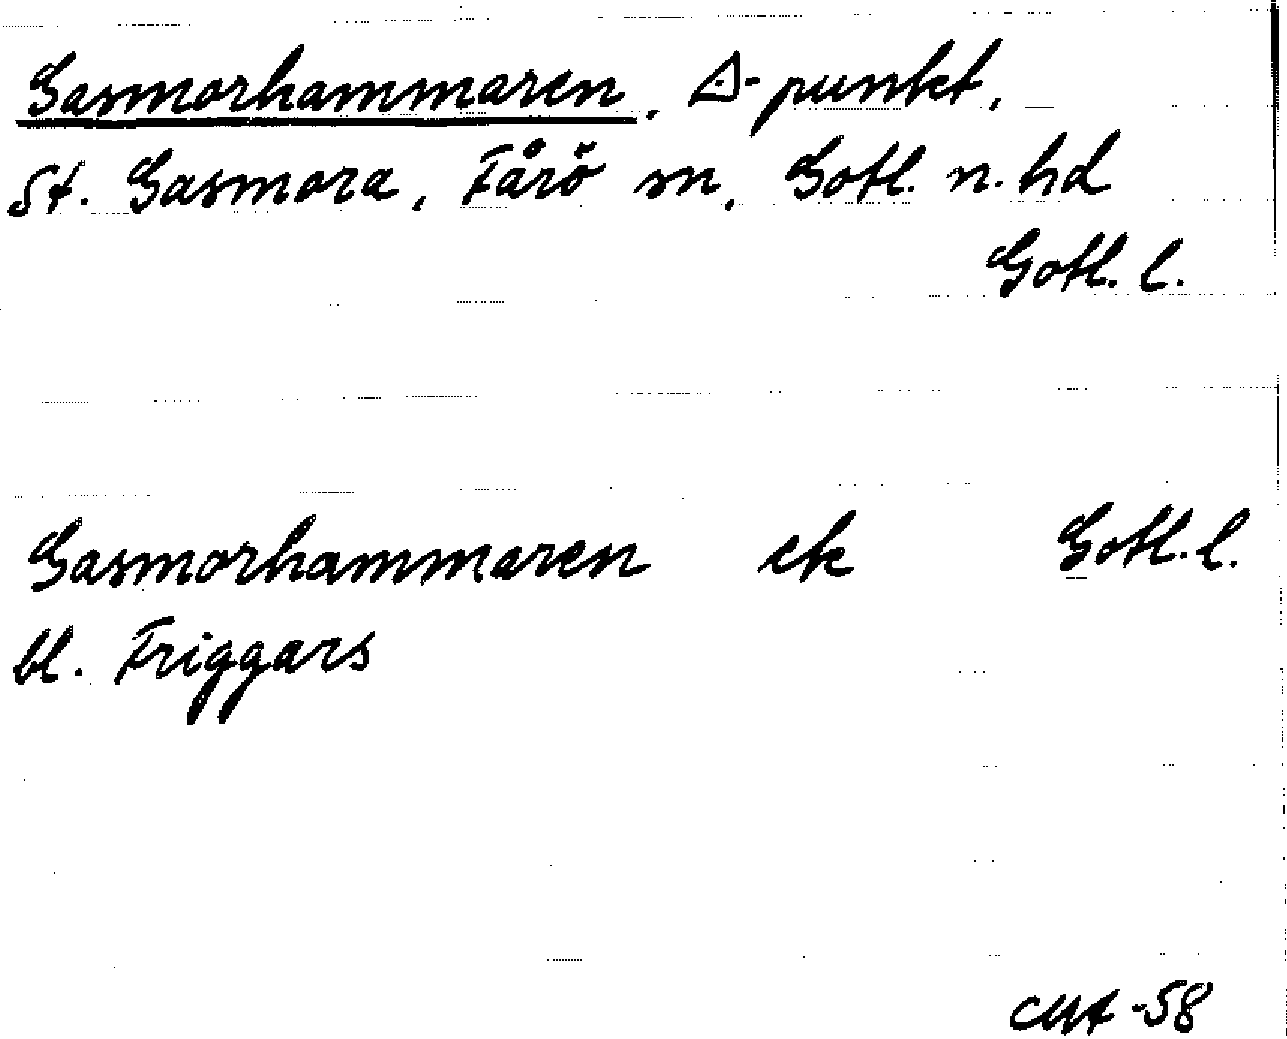 Gasmorhammaren, △-punkt,
St. Gasmora, Fårö sn, Gotl. n. hd
Gotl. l.
Gasmorhammaren ek Gotl. l.
bl. Friggars
-58